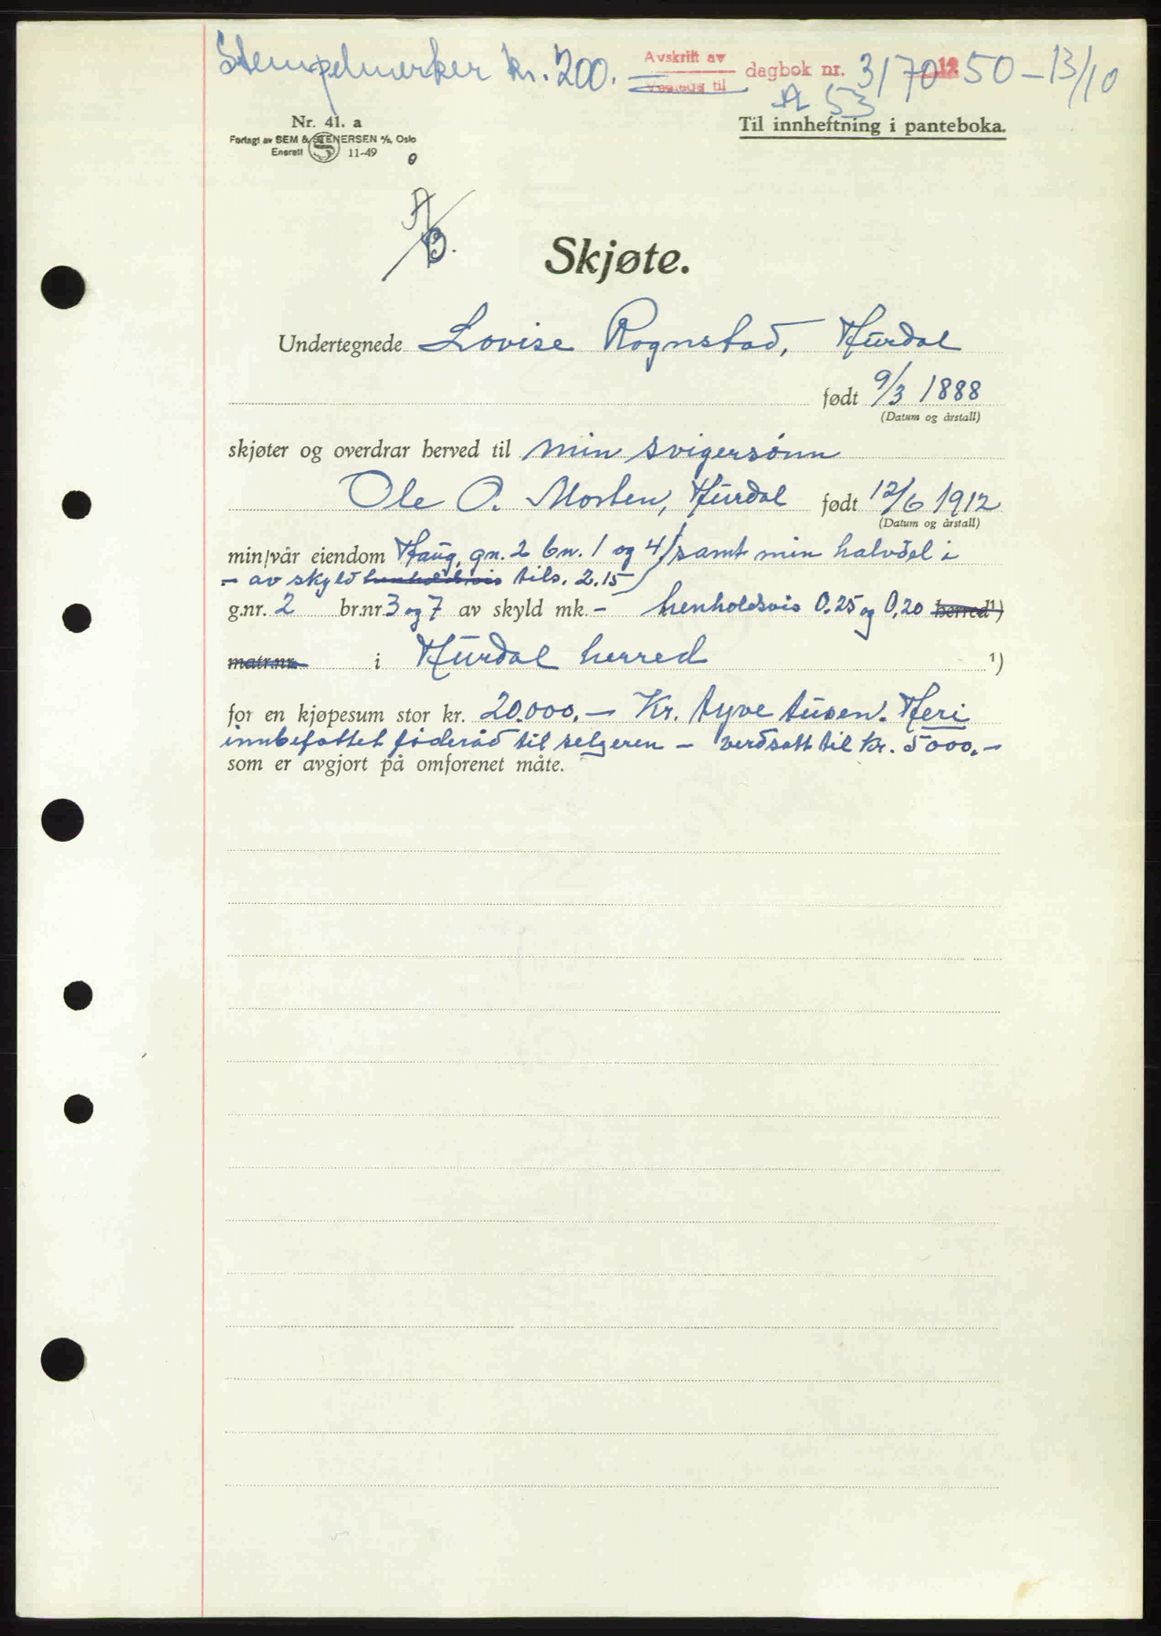 Stempelmerker kr. 200.
Avskrift av
dagbok nr. 3170 50 – 13/10
A 53
Nr. 41. a
Til innheftning i panteboka.
Forlagt av SEM & STENERSEN A/S, Oslo
Enerett S 11-49
A/B.
Skjøte.
Undertegnede Lovise Rognstad, Hurdal
født 9/3 1888
(Datum og årstall)
skjøter og overdrar herved til min svigersønn
Ole O. Morten, Hurdal født 12/6 1912
(Datum og årstall)
min/vår eiendom Haug, gn. 2 bn. 1 og 4, samt min halvdel i
– av skyld henholdsvis tils. 2.15
g.nr. 2 br.nr 3 og 7 av skyld mk. – henholdsvis 0.25 og 0,20 herred ¹)
matr.nr. i Hurdal herred ¹)
for en kjøpesum stor kr. 20.000. – Kr. tyve tusen. Heri
innbefattet föderåd til selgeren – verdsatt til kr. 5000. –
som er avgjort på omforenet måte.